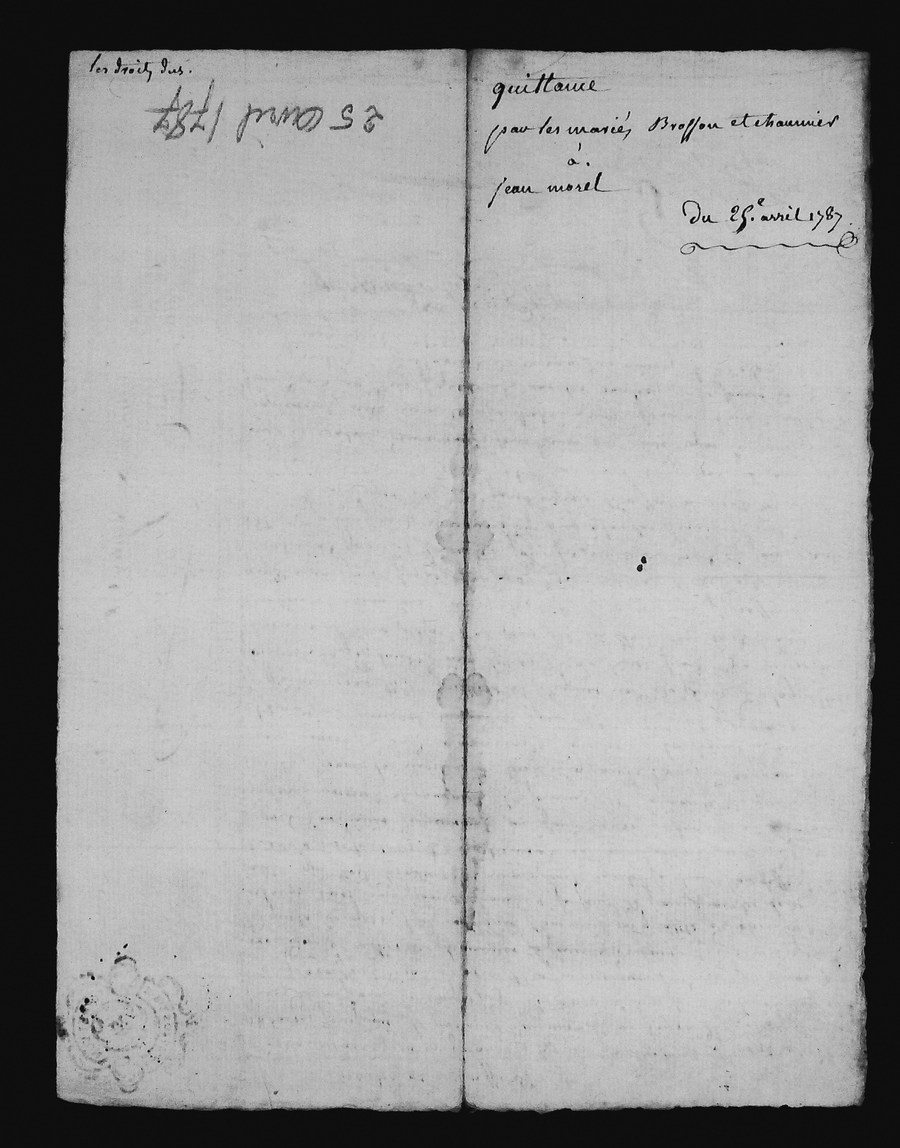 les droits dus.
25 Avril 1787
quittance
par les mariés Brosson et chaumier
à.
jean morel
Du 25.e avril 1787.